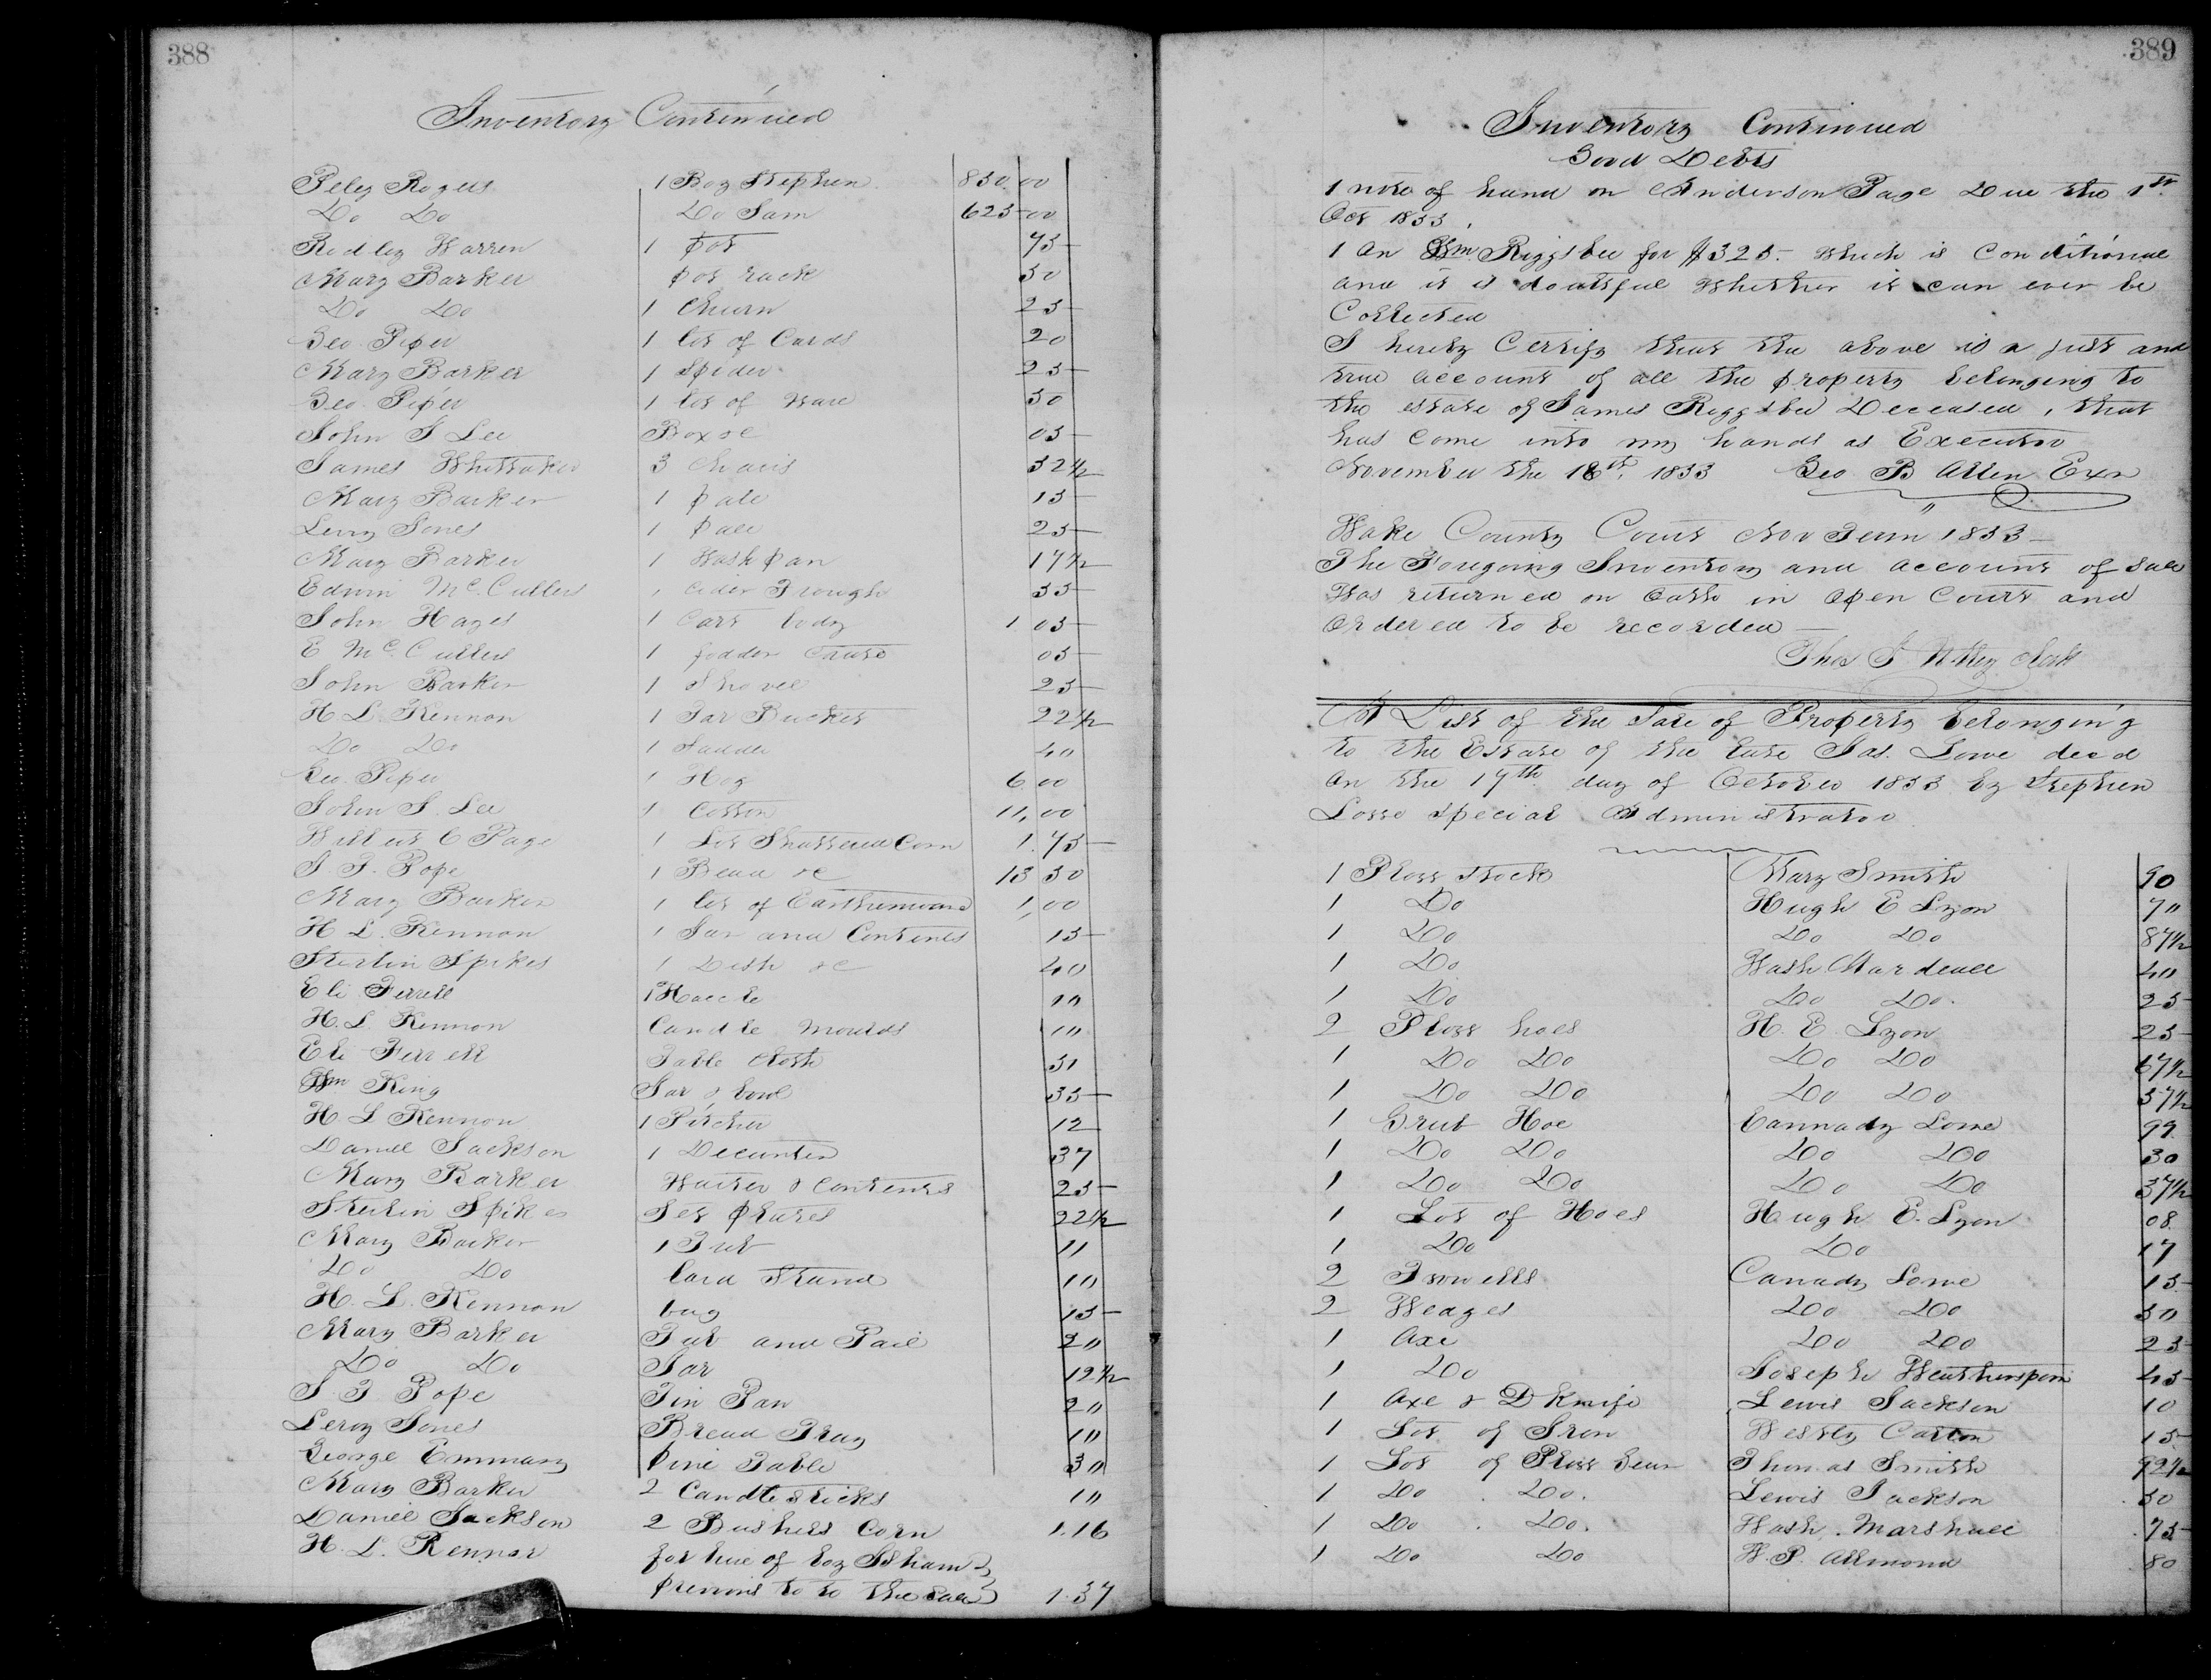 388
Inventory Continued
Peley Rogers 1 Boy Stephen 850.00
Do Do Do Sam 625 00
Rodley Warren 1 pot 75
Mary Barker pot rack 50
Do Do 1 Churn 25
Geo. Piper 1 lot of Cards 20
Mary Barker 1 Spider 25
Geo. Piper 1 lot of Ware 50
John J Lee Box &c 05
James Whittaker 3 Chairs 52 1/2
Mary Barker 1 pale 15
Leroy Jones 1 pale 25
Mary Barker 1 Wash pan 17 1/2
Edwin McCullers 1 cider Trough 55
John Hayes 1 Cart body 1 05
E McCullers 1 fodder 05
John Barker 1 Shovel 25
H L. Kennon 1 Tar Bucket 22 1/2
Do Do 1 Ladder 40
Geo. Piper 1 Hog 6 00
John J. Lee 1 Cotton 11,00
Wilbert C Page 1 Lot Shattered Corn 1.75
J. T. Pope 1 Bead &c 13 50
Mary Barker 1 lot of Earthenware 1,00
H L. Kennon 1 Jar and Contents 15
Sterlin Spikes 1 Dish &c 40
Eli Ferrell 1 10
H. L. Kennon Candle Moulds 10
Eli Ferrell Table Cloth 51
Wm King Jar & bowl 55
H. L Kennon 1 Pitcher 12
Daniel Jackson 1 Decanter 37
Mary Barker Waiter & Contents 25
Sterlin Spikes Set plates 22 1/2
Mary Barker 1 Tub 11
Do Do lard Stand 10
H. L. Kennon bag 15
Mary Barker Tub and Pail 20
Do Do Jar 12 1/2
J. T. Pope Tin Pan 20
Leroy Jones Bread Tray 10
George Emmary pine Table 30
Mary Barker 2 Candle Sticks 10
Daniel Jackson 2 Bushels Corn 1.16
H. L. Kennon for hire of boy Isham
previous to to the Sale 1.37
389
Inventory Continued
Good Debts
1 note of hand on Anderson Page Due the 1st
Oct 1833.
1 on Wm Riggsbee for $325. Which is Conditional
and it is doubtful Whether it can ever be
Collected
I hereby Certify that the above is a just and
true account of all the property belonging to
the estate of James Riggsbee Deceased, that
has come into my hands as Executor
November the 18th, 1833 Geo B Allen Exr
Wake County Court Nov Term 1833
The Foregoing Inventory and account of Sale
Was returned on Oath in Open Court and
Ordered to be recorded
Thos J Utley Clerk
A List of the Sale of Property belonging
to the Estate of the late Jas. Lowe decd
on the 17th day of October 1833 by Stephen
Lowe Special Administrator
1 Plow Stock Mary Smith 50
1 Do Hugh E Lyon 70
1 Do Do Do 87 1/2
1 Do Wash Mardeall 40
1 Do Do Do. 25
2 Plow hoes H. E. Lyon 25
1 Do Do Do Do 67 1/2
1 Do Do Do Do 57 1/2
1 Grub Hoe Cannady Lowe 99
1 Do Do Do Do 30
1 Do Do Do Do 37 1/2
1 Lot of Hoes Hugh E. Lyon 08
1 Do Do 17
2 Trowells Canady Lowe 15
2 Wedges Do Do 50
1 Axe Do Do 25
1 Do Joseph Weatherspoon 45
1 Axe & D Knife Lewis Jackson 10
1 Lot of Iron Westly Carlton 15
1 Lot of Plow Gear Thomas Smith 92 1/2
1 Do. Do. Lewis Jackson 50
1 Do. Do. Wash. Marshall 75
1 Do Do W. P. Allmond 80